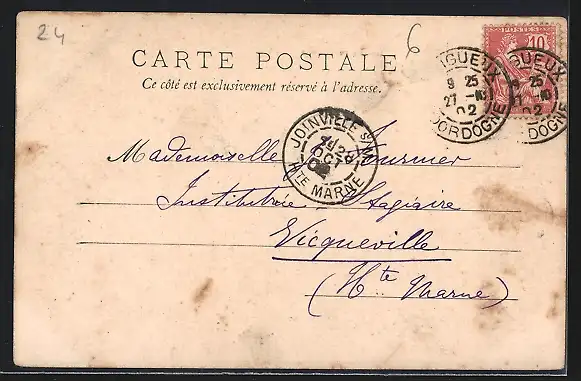 24
6
CARTE POSTALE
Ce côté est exclusivement réservé à l'adresse.
10
POSTES
IGUEUX
9 25
27 -10
02
DORDOGNE
GUEUX
25
10
02
DOGNE
JOINVILLE S
28
OCT
02
HTE MARNE
Mademoiselle Fournier
Institutrice Stagiaire
Vicqueville
(Hte Marne)